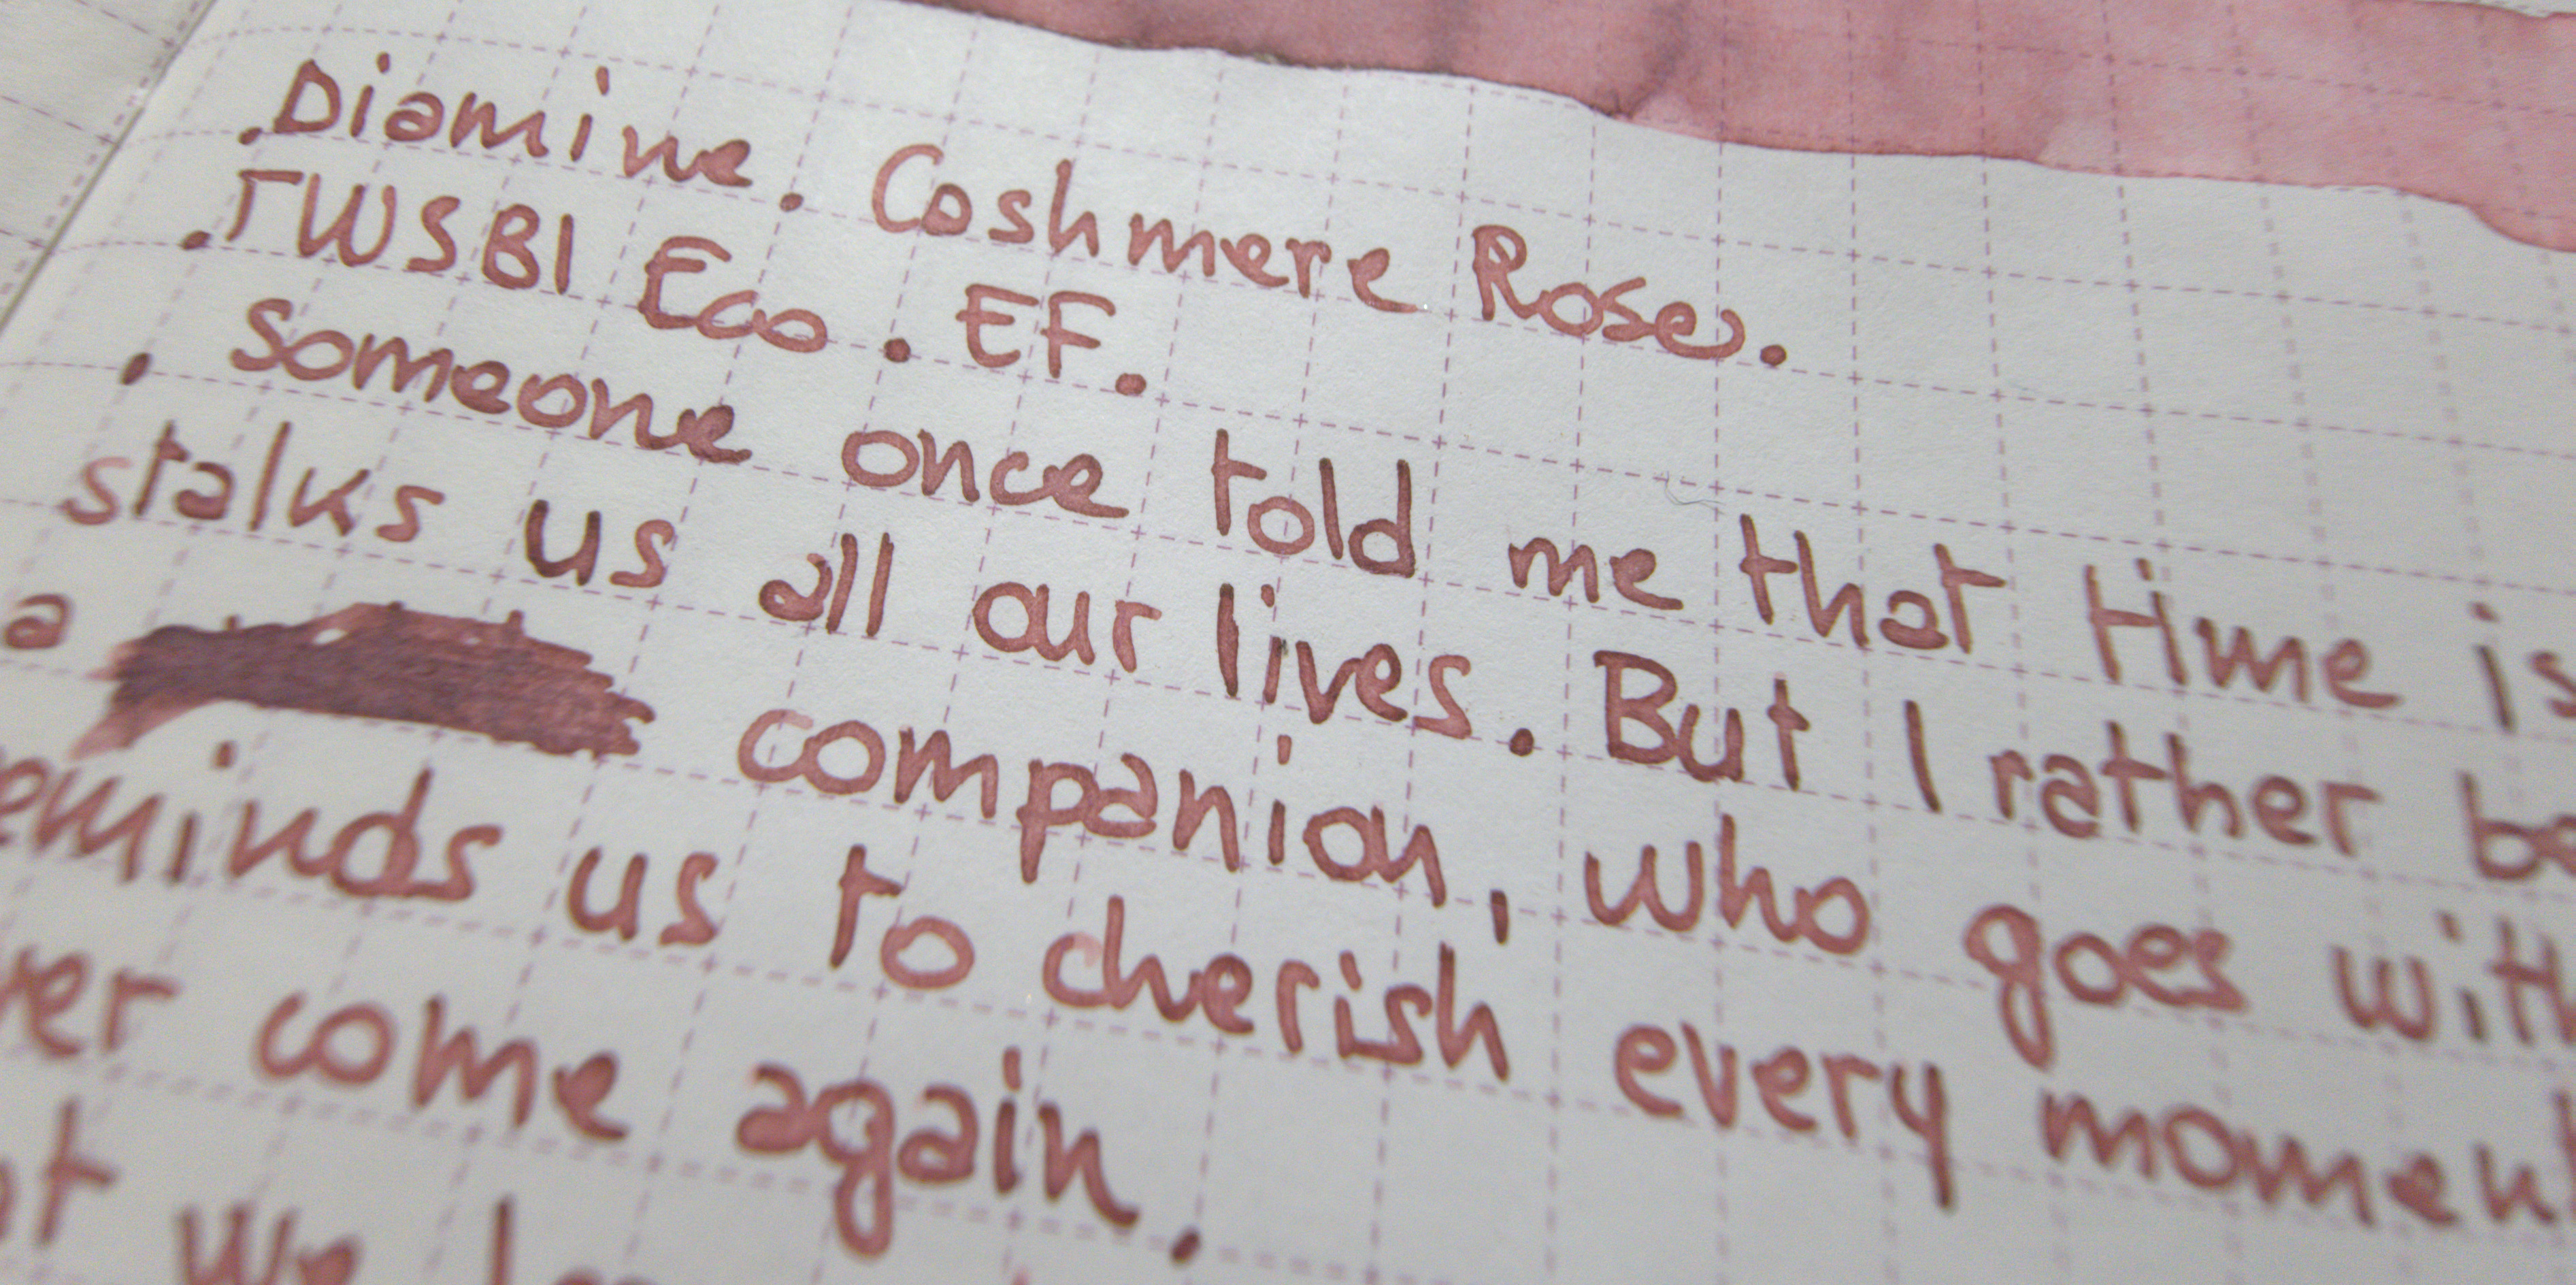 .Diamine. Cashmere Rose.
.TWSBI Eco. EF.
. Someone once told me that time is
stalks us all our lives. But I rather be
a companion, who goes with
eminds us to cherish every moment
ver come again.
we